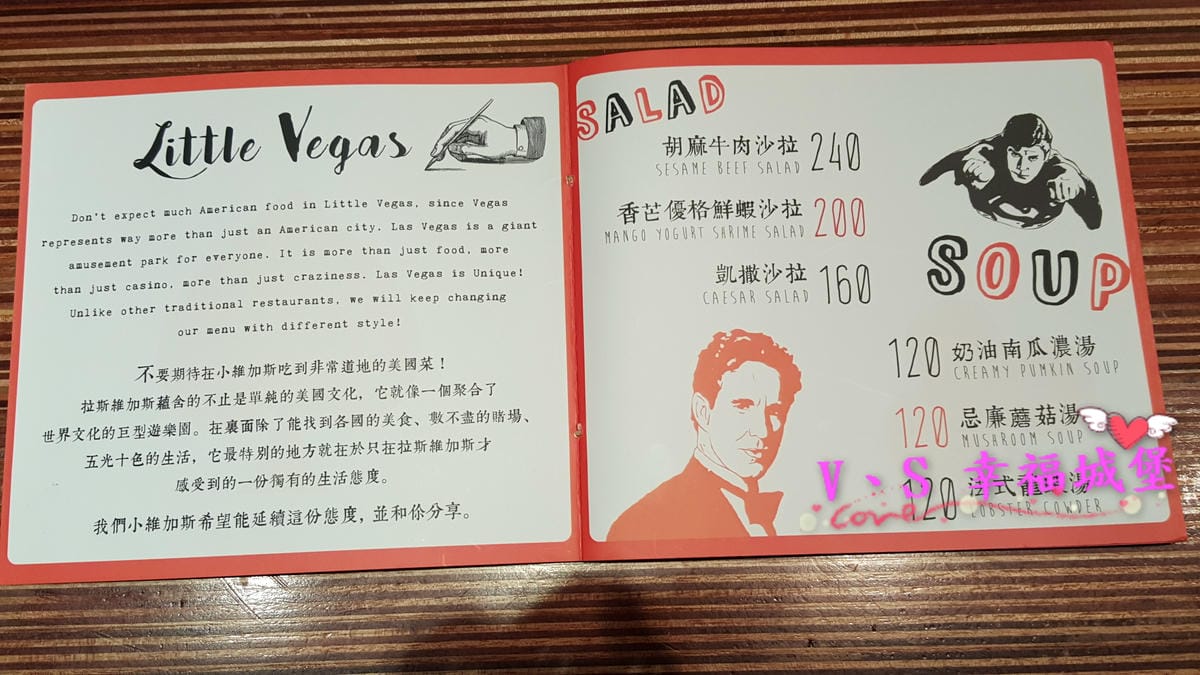 Little Vegas
Don't expect much American food in Little Vegas, since Vegas
represents way more than just an American city. Las Vegas is a giant
amusement park for everyone. It is more than just food, more
than just casino, more than just craziness. Las Vegas is Unique!
Unlike other traditional restaurants, we will keep changing
our menu with different style!
不要期待在小維加斯吃到非常道地的美國菜！
拉斯維加斯蘊含的不止是單純的美國文化，它就像一個聚合了
世界文化的巨型遊樂園。在裏面除了能找到各國的美食、數不盡的賭場、
五光十色的生活，它最特別的地方就在於只在拉斯維加斯才
感受到的一份獨有的生活態度。
我們小維加斯希望能延續這份態度，並和你分享。
SALAD
胡麻牛肉沙拉 240
SESAME BEEF SALAD
香芒優格鮮蝦沙拉 200
MANGO YOGURT SHRIME SALAD
凱撒沙拉 160
CAESAR SALAD
SOUP
120 奶油南瓜濃湯
CREAMY PUMKIN SOUP
120 忌廉蘑菇湯
MUSHROOM SOUP
120 法式龍蝦湯
LOBSTER COWDER
V、S 幸福城堡